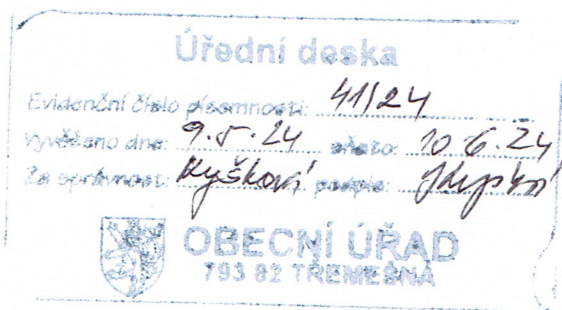 Úřední deska
Evidenční číslo písemnosti: 41/24
Vyvěšeno dne: 9.5.24 sňato: 10.6.24
Za správnost: Kyšková podpis:
OBECNÍ ÚŘAD
793 82 TŘEMEŠNÁ